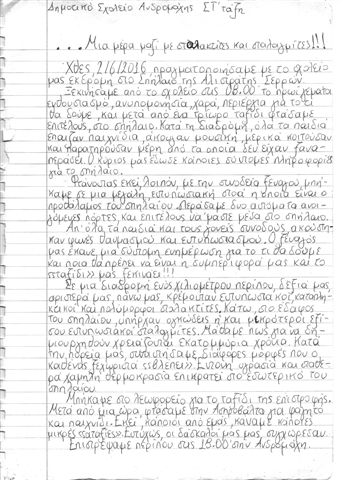 Δημοτικό Σχολείο Ανδρομάχης ΣΤ΄ τάξη
...Μια μέρα μαζί με σταλακτίτες και σταλαγμίτες!!!
Χθες, 2/6/2016, πραγματοποιήσαμε με το σχολείο
μας εκδρομή στο Σπήλαιο της Αλιστράτης Σερρών.
Ξεκινήσαμε από το σχολείο στις 08.00 το πρωί γεμάτοι
ενθουσιασμό, ανυπομονησία, χαρά, περιέργεια για το τι
θα δούμε, και μετά από ένα τρίωρο ταξίδι φτάσαμε
επιτέλους, στο σπήλαιο. Κατά τη διαδρομή, όλα τα παιδιά
έπαιζαν παιχνίδια, άκουγαν μουσική, μερικά κοιτούσαν
και παρατηρούσαν μέρη από τα οποία δεν είχαν ξανα-
περάσει. Ο κύριος μας έδωσε κάποιες σύντομες πληροφορίες
για το σπήλαιο.
Φτάνοντας εκεί, λοιπόν, με την συνοδεία ξεναγού, μπή-
καμε σε μια μεγάλη, εντυπωσιακή στοά η οποία είναι ο
προθάλαμος του σπηλαίου. Περάσαμε δυο αυτόματα ανοι-
γόμενες πόρτες, και επιτέλους να 'μαστε μέσα στο σπήλαιο.
Απ' όλα τα παιδιά και τους γονείς συνοδούς, ακούστη-
καν φωνές θαυμασμού και εντυπωσιασμού. Ο ξεναγός
μας έκανε μια σύντομη ενημέρωση για το τι θα δούμε
και ποια θα πρέπει να είναι η συμπεριφορά μας και το
«ταξίδι» μας ξεκινάει!!!
Σε μια διαδρομή ενός χιλιομέτρου περίπου, δεξιά μας,
αριστερά μας, πάνω μας, κρέμονταν εντυπωσιακοί, κατάλη-
κτικοί και πολύμορφοι σταλακτίτες. Κάτω, στο έδαφος
του σπηλαίου, υπήρχαν ογκώδεις ή και μικρότεροι εξί-
σου εντυπωσιακοί σταλαγμίτες. Μάθαμε πως για να δη-
μιουργηθούν χρειάζονται εκατομμύρια χρόνια. Κατά
την πορεία μας, συναντήσαμε διάφορες μορφές που ο
καθένας ξεχωριστά «έβλεπε». Έντονη υγρασία και σταθε-
ρά χαμηλή θερμοκρασία επικρατεί στο εσωτερικό του
σπηλαίου.
Μπήκαμε στο λεωφορείο για το ταξίδι της επιστροφής.
Μετά από μια ώρα, φτάσαμε στην Ασπροβάλτα για φαγητό
και παιχνίδι. Εκεί, κάποιοι από εμάς, κάναμε κάποιες
μικρές «αταξίες». Ευτυχώς, οι δάσκαλοί μας μας, συγχώρεσαν.
Επιστρέψαμε περίπου στις 18:00 στην Ανδρομάχη.